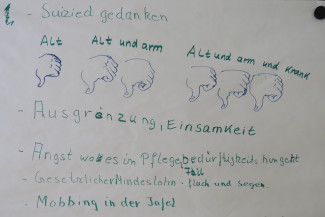 - Suizied gedanken
Alt Alt und arm Alt und arm und krank
- Ausgränzung, Einsamkeit
- Angst wo es im Pflege, bedürftigkeits hingeht
Fall
- Gesetzlicher Mindestlohn - fluch und segen.
- Mobbing in der